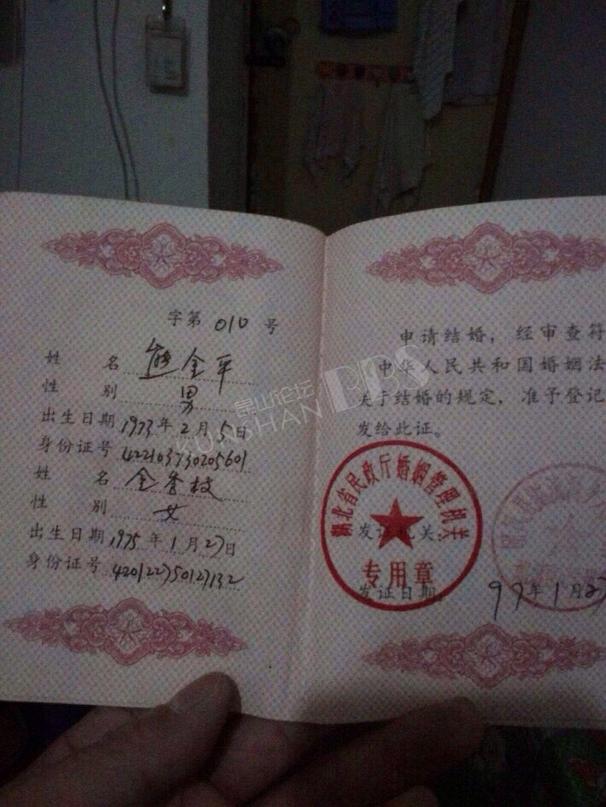 字第010号
姓名 熊金平
性别 男
出生日期1973年2月5日
身份证号422103730205601
姓名 金秀枝
性别 女
出生日期1975年1月27日
身份证号
申请结婚，经审查符
中华人民共和国婚姻法
关于结婚的规定，准予登记
发给此证。
湖北省民政厅婚姻管理机关
专用章
发证机关
发证日期 97年1月27
昆山论坛
KUNSHAN BBS